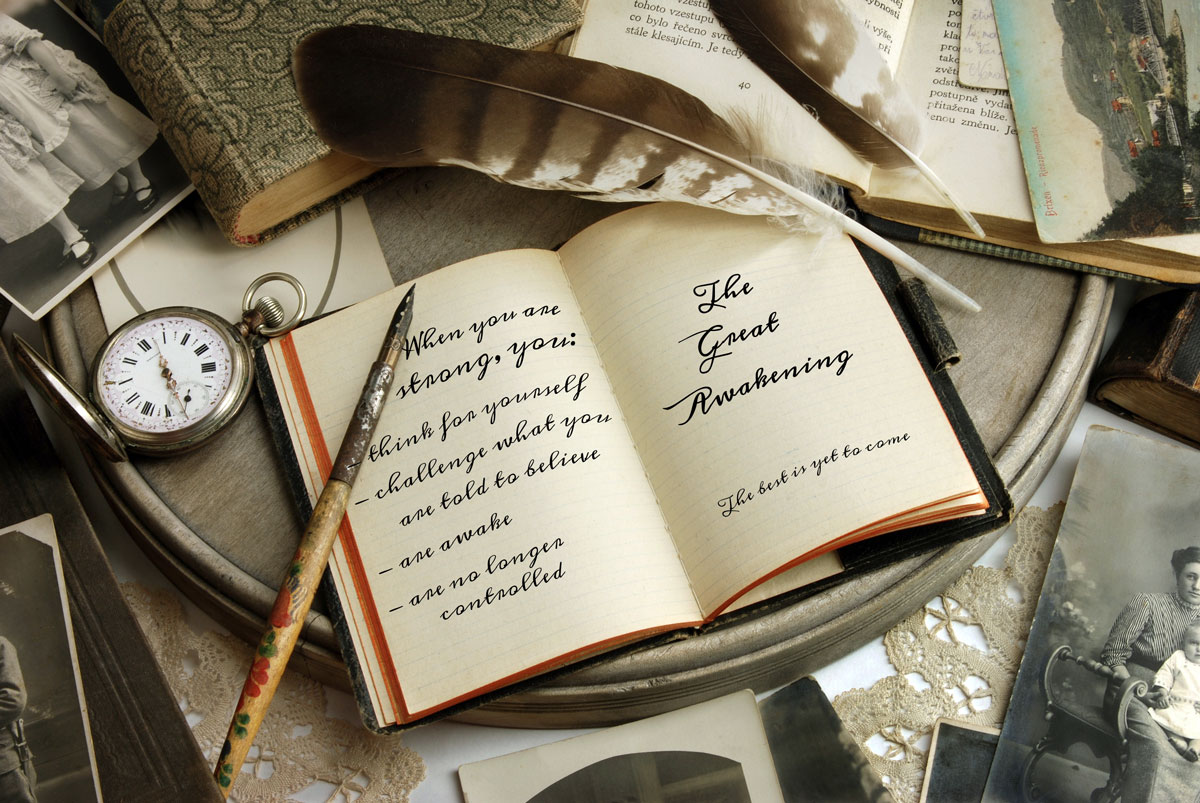 When you are
strong, you:
– think for yourself
– challenge what you
are told to believe
– are awake
– are no longer
controlled
The
Great
Awakening
The best is yet to come
tohoto vzestupu
co bylo řečeno
stále klesajícím. Je tedy
40
při
postupně
přitažena blíže.
enou změnu. Je
Brixen